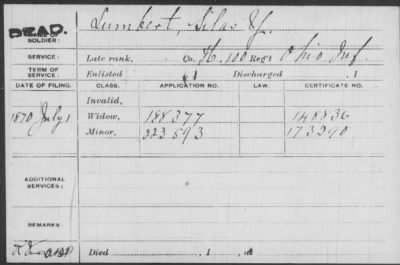 DEAD.
NAME OF SOLDIER: Lumbert, Silas Y.
SERVICE: Late rank, Co. H, 100 Reg't Ohio Inf
TERM OF SERVICE: Enlisted , 1 Discharged , 1
DATE OF FILING. CLASS. APPLICATION NO. LAW. CERTIFICATE NO.
Invalid,
1870 July 1 Widow, 188377 148836
Minor, 223593 173290
ADDITIONAL SERVICES:
REMARKS:
Died , 1 , at